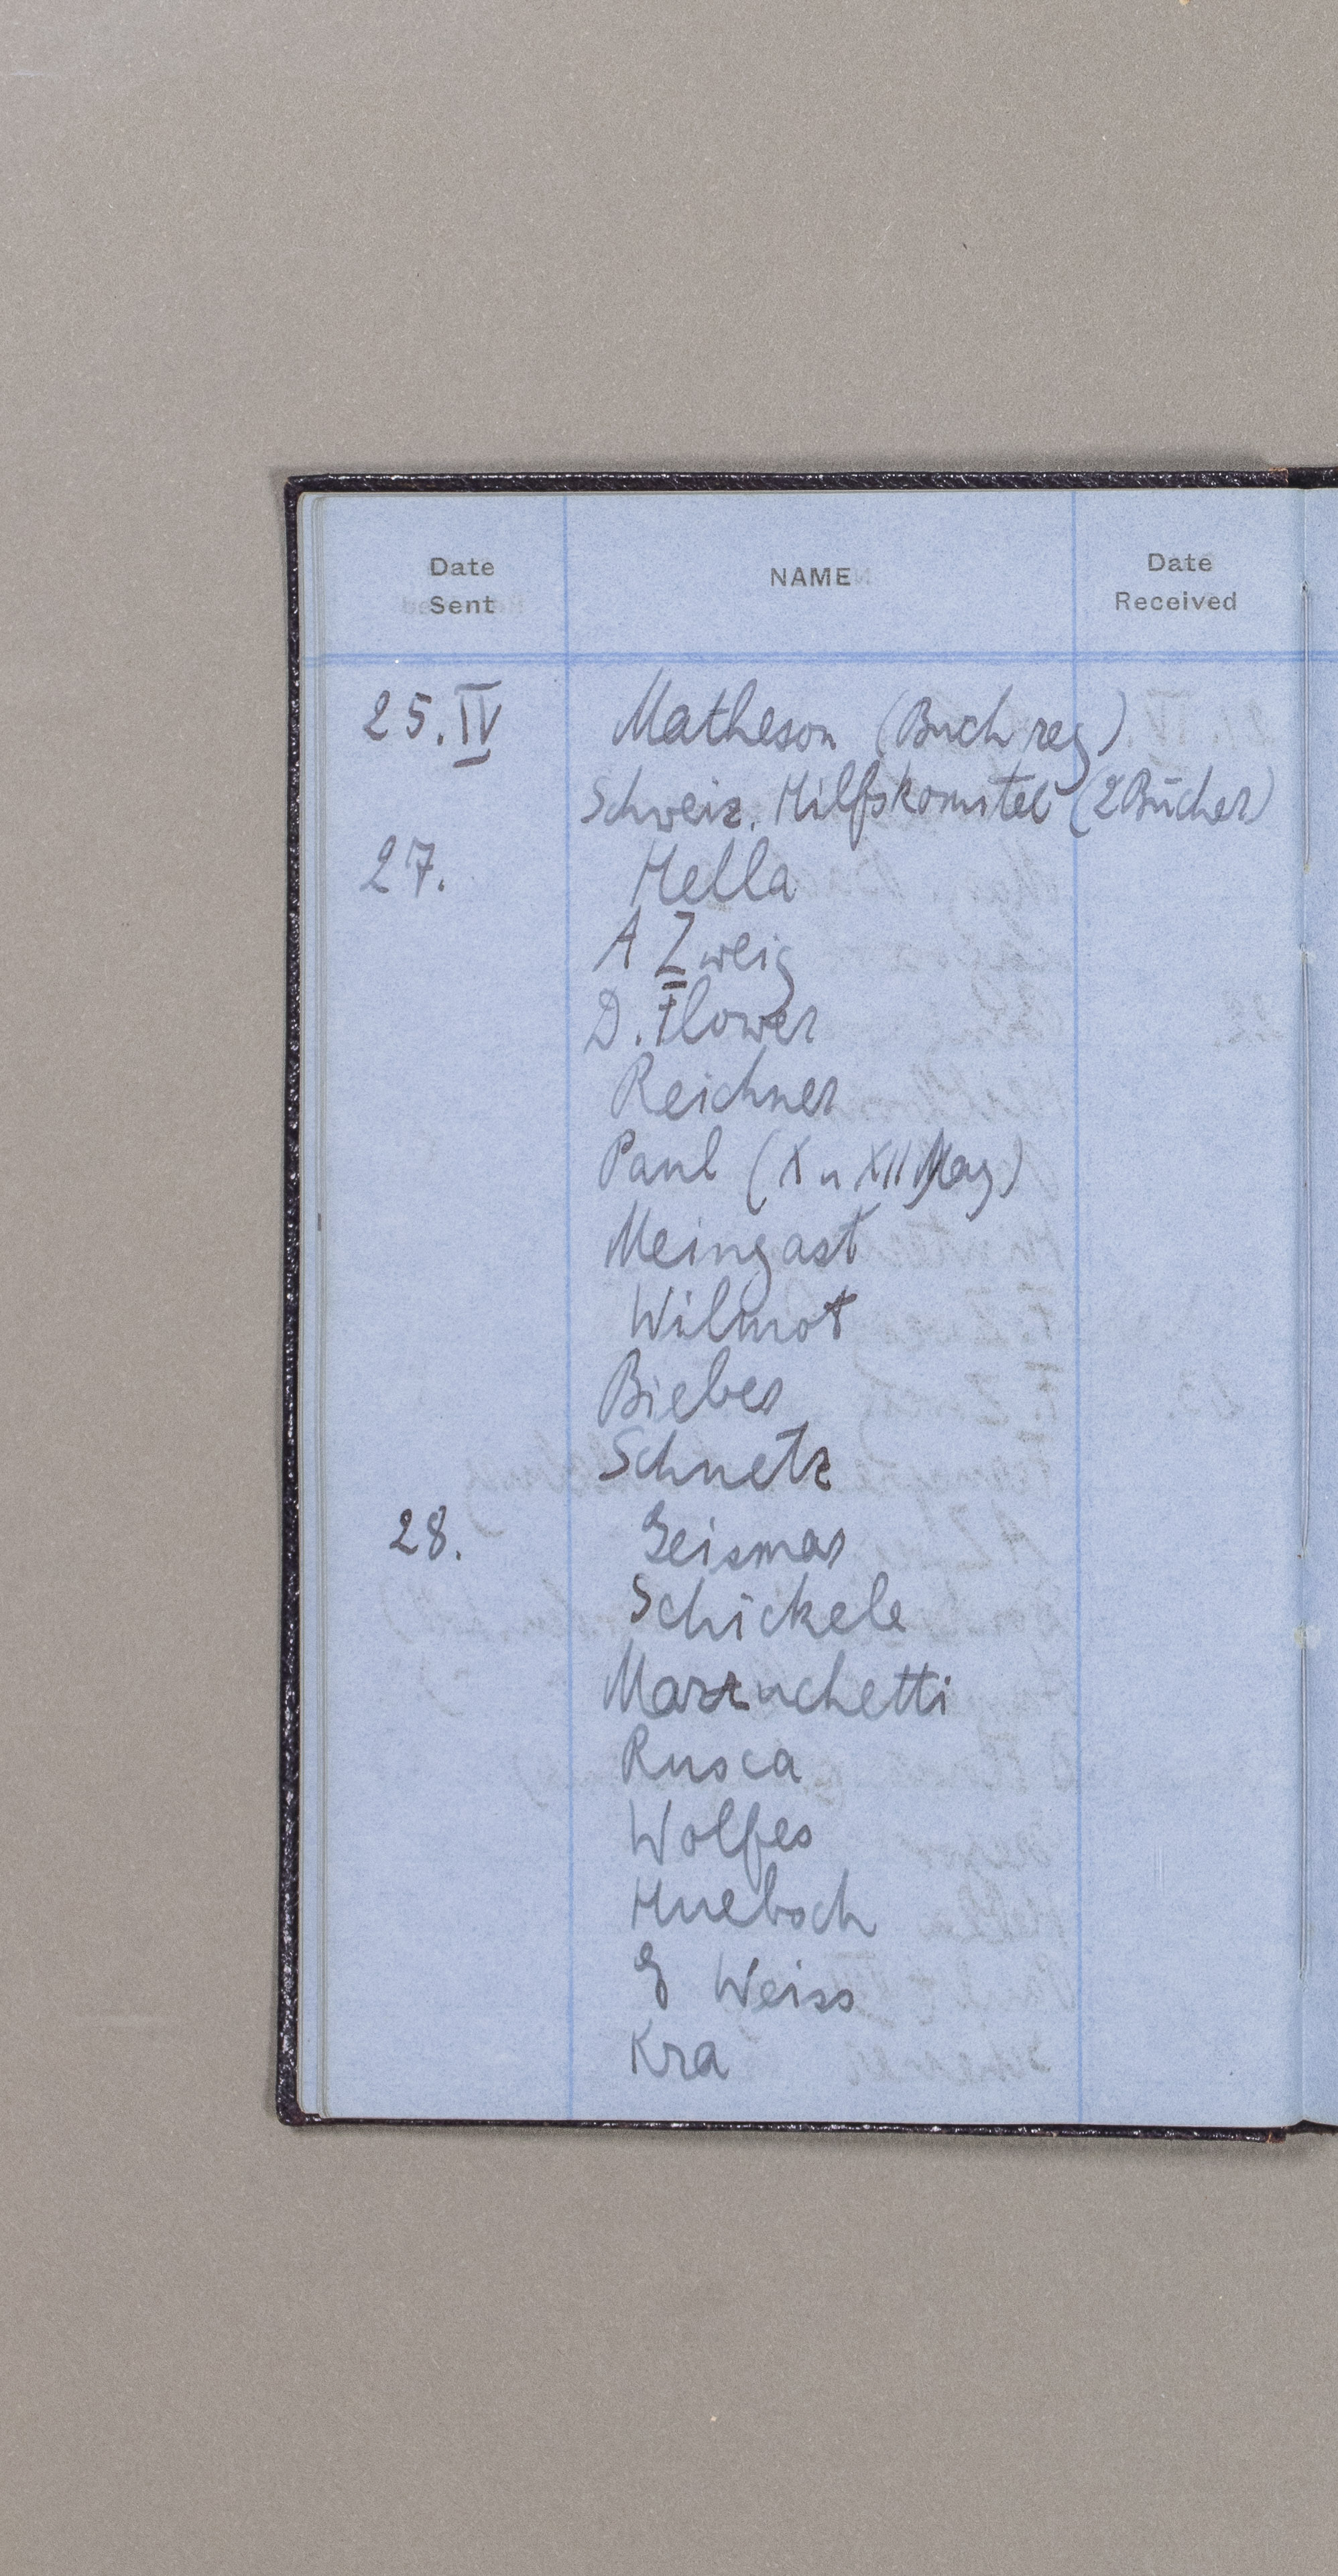 Date Sent NAME Date Received
25. IV Matheson (Buch reg)
Schweiz. Hilfskomitee (2 Bücher)
27. Hella
A Zweig
D. Flower
Reichner
Paul (X u XII Mag)
Meingast
Wilmot
Bieber
Schnetz
28. Geismar
Schickele
Marzuchetti
Rusca
Wolfes
Huebsch
E Weiss
Kra